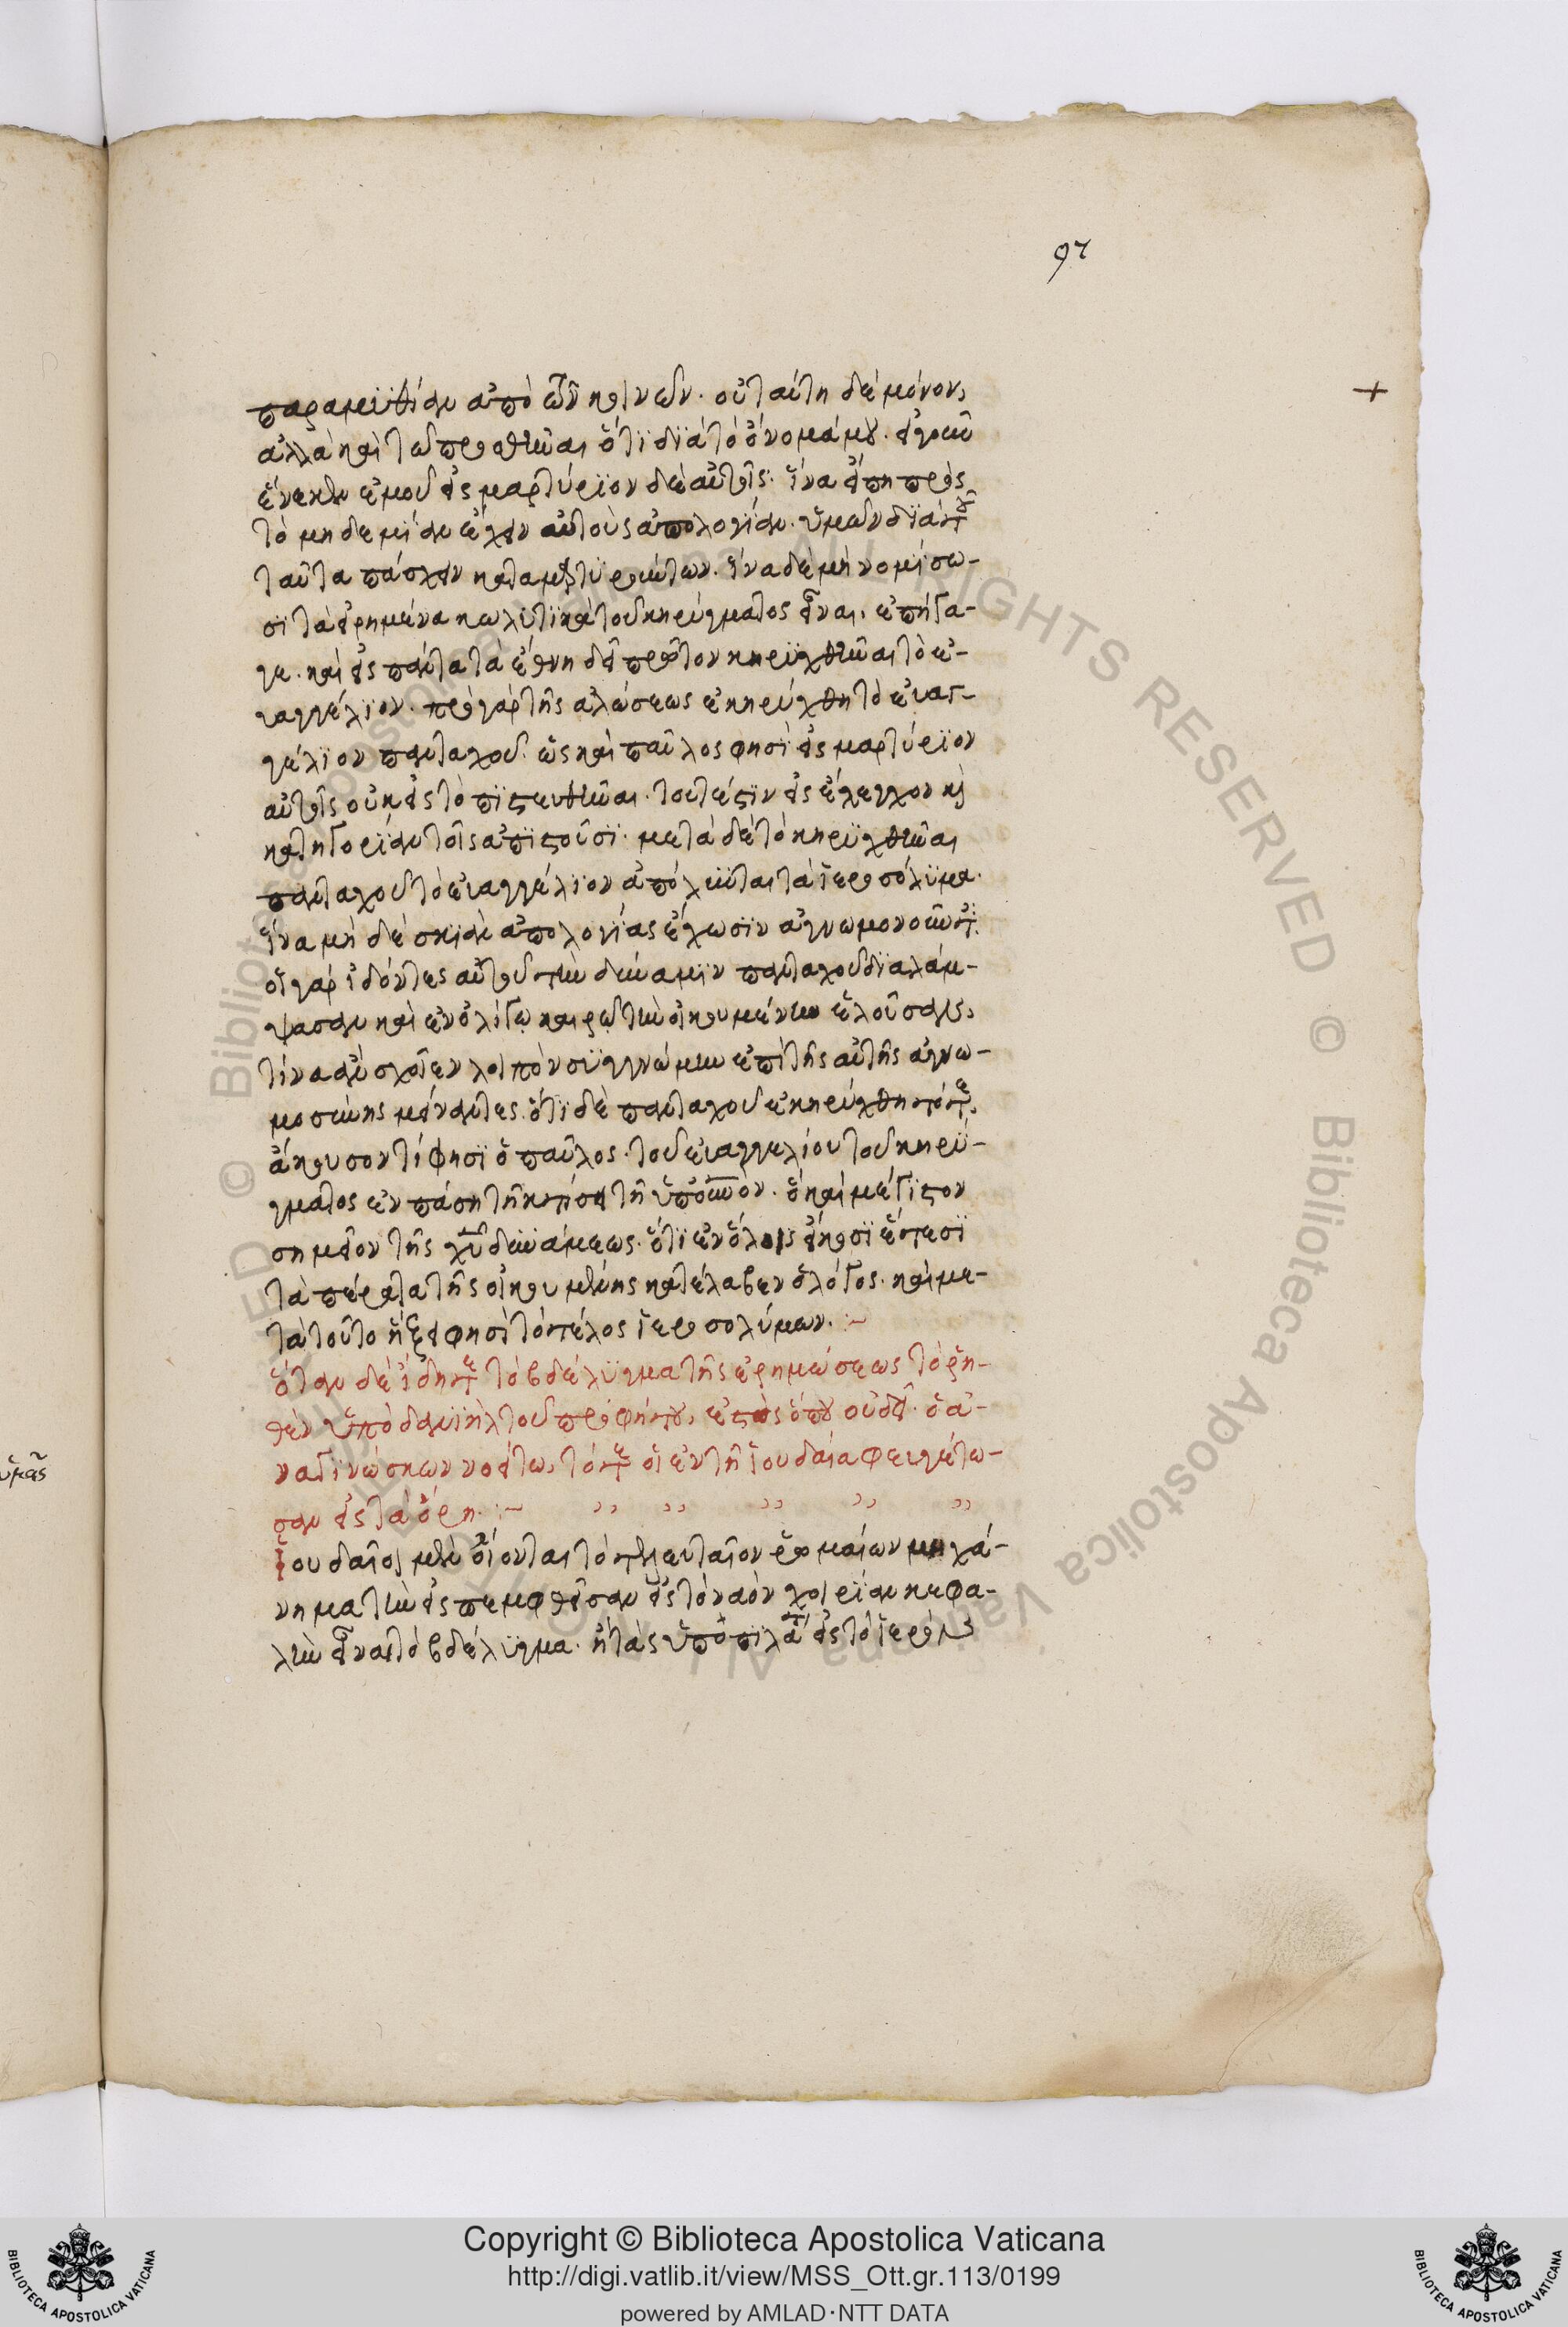 97
+
παραμυϊθίαν ἀπὸ τῶν κοινῶν. οὐ ταύτη δὲ μόνον,
ἀλλὰ καὶ τῶ προσθεῖναι ὅτϊ δϊὰ τὸ ὄνομά μου.
ἕνεκεν ἐμοῦ εἰς μαρτύρϊον δὲ αὐτοῖς. ἵνα εἴπη πρὸς
τὸ μηδεμϊαν ἔχειν αὐτοὺς ἀπολογίαν. ὑμῶν δϊὰ
ταῦτα πάσχειν καταμαρτυρούντων. ἵνα δὲ μὴ νομίσω-
σϊ τὰ εἰρημένα κωλυτϊκὰ τοῦ κηρύγματος εἶναι, ἐπήγα-
γε. καὶ εἰς πάντα τὰ ἔθνη δεῖ πρῶτον κηρϋχθῆναι τὸ εὐ-
αγγέλϊον. πρὸ γὰρ τῆς ἁλώσεως ἐκηρύχθη τὸ εὐαγ-
γέλϊον πανταχοῦ. ὡς καὶ παῦλος φησϊ εἰς μαρτύρϊον
αὐτοῖς οὐκ εἰς τὸ πϊστευθῆναι. τουτέστϊν εἰς ἔλεγχον κὶ
κατηγορϊαν τοῖς ἀπϊστοῦσϊ. μετὰ δὲ τὸ κηρϋχθῆναι
πανταχοῦ τὸ εὐαγγέλϊον ἀπόλλυται τὰ ἱεροσόλϋμα.
ἵνα μὴ δὲ σκιὰν ἀπολογίας ἔχωσϊν ἀγνωμονοῦντες
οἱ γὰρ ἰδόντες αὐτοῦ τὴν δύναμϊν πανταχοῦ δϊαλάμ-
ψασαν καὶ ἐν ὀλίγω καιρῶ τὴν οἰκουμένην ἑλοῦσαν,
τίνα ἂν σχοῖεν λοιπὸν συγγνώμην ἐπὶ τῆς αὐτῆς ἀγνω-
μοσύνης μείναντες. ὅτϊ δὲ πανταχοῦ ἐκηρύχθη τότε,
ἄκουσον τί φησϊ ὁ παῦλος. τοῦ εὐαγγελίου τοῦ κηρύ-
γματος ἐν πάση τῆ κτίσει τῆ ὑπὸ τὸν οὐνον. ὃ καὶ μέγϊστον
σημεῖον τῆς χυ δυνάμεως. ὅτϊ ἐν ὅλοις εἴκοσϊ ἔτεσϊ
τὰ πέρατα τῆς οἰκουμένης κατέλαβεν ὁ λόγος. καὶ με-
τὰ τοῦτο ἥξει φησὶ τὸ τέλος ἱεροσολύμων. :~
ὅταν δὲ ἴδητε τὸ βδέλϋγμα τῆς ἐρημώσεως τὸ ῥη-
θὲν ὑπὸ δανϊὴλ τοῦ προφήτου, ἑστὼς ὅπου οὐ δεῖ. ὁ ἀ-
ναγϊνώσκων νοείτω, τότε οἱ ἐν τῆ ἰουδαία φευγέτω-
σαν εἰς τὰ ὄρη. :~ ,, ,, ,, ,, ,,
ἰουδαῖοι μὲν οἴονται τὸ τελευταῖον ῥωμαίων μηχά-
νημα τὴν εἰσπεμφθεῖσαν εἰς τὸν ναὸν χοιρϊαν κεφα-
λὴν εἶναι τὸ βδέλϋγμα. ἢ τὰς ὑπὸ πϊλάτου εἰς τὸ ἱερὸν
ὑμᾶς
Copyright © Biblioteca Apostolica Vaticana
http://digi.vatlib.it/view/MSS_Ott.gr.113/0199
powered by AMLAD·NTT DATA
BIBLIOTECA APOSTOLICA VATICANA
BIBLIOTECA APOSTOLICA VATICANA